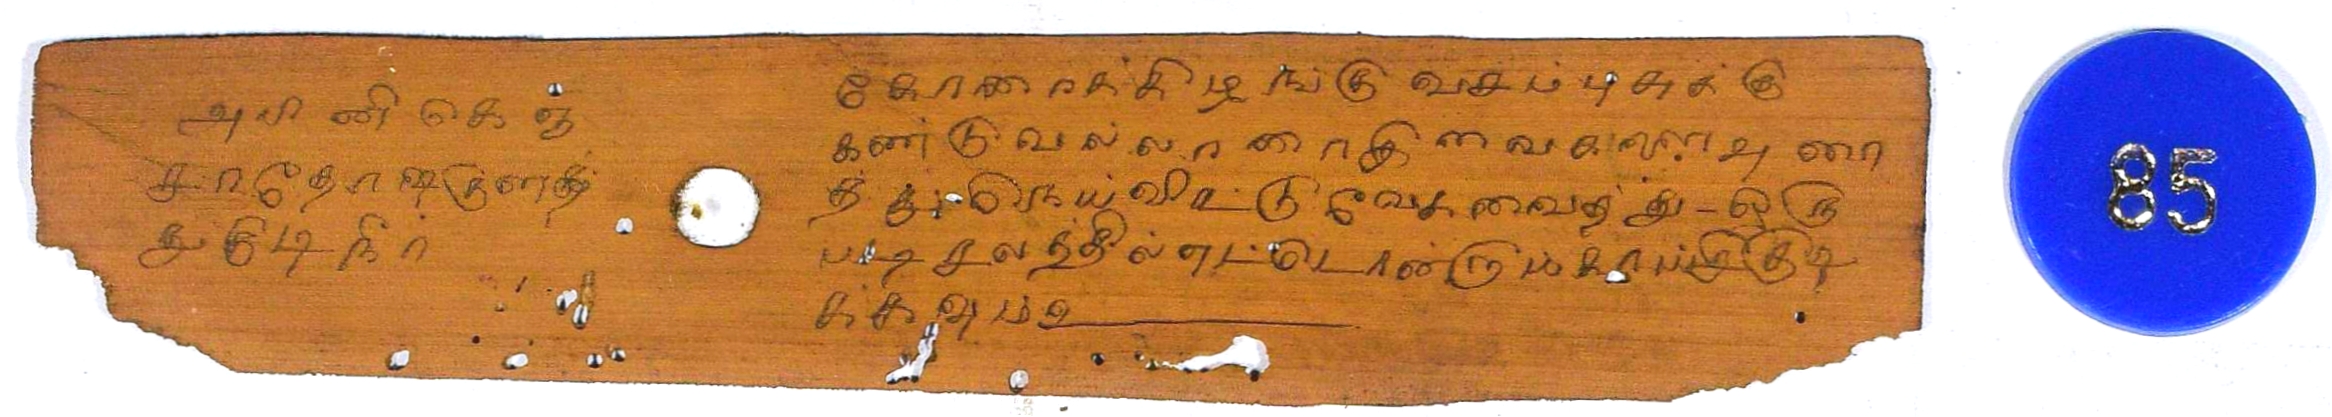 அபினிகெந
தகாதோஷகுளத்
துகுடிநீர்
கோரைக்கிழங்கு வசம்பு சுக்கு
கண்டுவல்லாரைஇவைகளைஅரை
த்து நெய்விட்டு வேகவைத்து - ஒரு
படிசலத்தில்எட்டொன்றுமகாய்ச்சிகுடி
க்கவும்
85